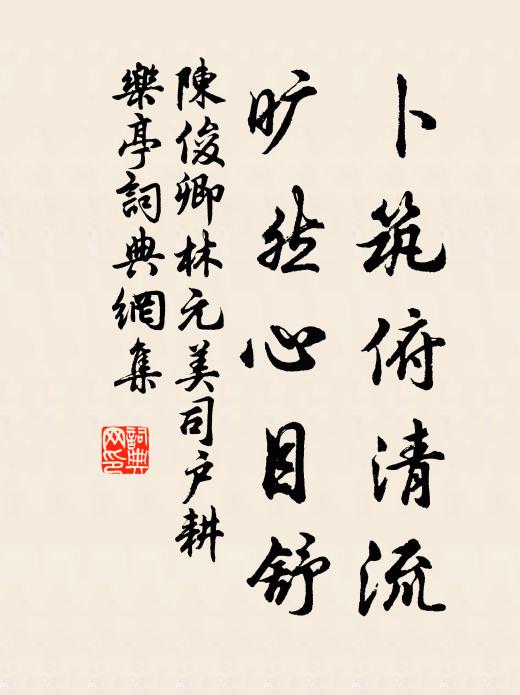 卜筑俯清流
旷然心目舒
陳俊卿林元美司户耕
樂亭詞典網集
詞典
网印